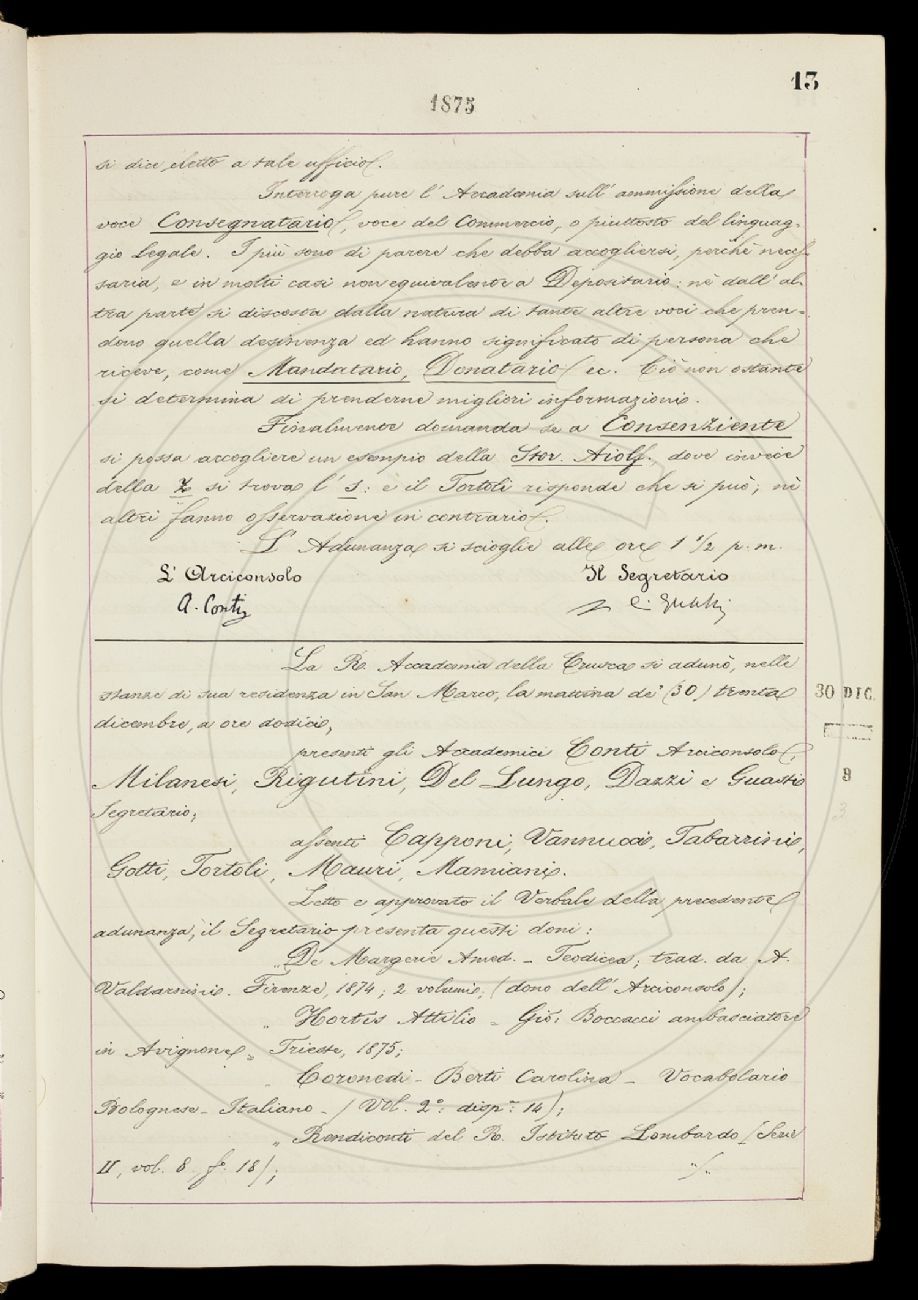 13
1875
si dice eletto a tale ufficio.
Interroga pure l' Accademia sull' ammissione della
voce Consegnatario, voce del Commercio, o piuttosto del linguag-
gio Legale. I più sono di parere che debba accogliersi, perchè neces-
saria, e in molti casi non equivalente a Depositario: nè dall' al-
tra parte si discosta dalla natura di tante altre voci che pren-
dono quella desinenza ed hanno significato di persona che
riceve, come Mandatario, Donatario ec. Ciò non ostante
si determina di prenderne migliori informazioni.
Finalmente domanda se a Consenziente
si possa accogliere un esempio della Stor. Aiolf., dove invece
della z si trova l' s: e il Tortoli risponde che si può; nè
altri fanno osservazione in contrario.
L' Adunanza si scioglie alle ore 1 1/2 p. m.
L' Arciconsolo Il Segretario
A. Conti C. Guasti
La R. Accademia della Crusca si adunò, nelle
stanze di sua residenza in San Marco, la mattina de' (30) trenta
30 DIC.
dicembre, a ore dodici,
presenti gli Accademici Conti Arciconsolo,
Milanesi, Rigutini, Del Lungo, Dazzi e Guasti
Segretario;
assenti Capponi, Vannucci, Tabarrini,
Gotti, Tortoli, Mauri, Mamiani.
Letto e approvato il Verbale della precedente
adunanza, il Segretario presenta questi doni:
„ De Margerie Amed. - Teodicea; trad. da A.
Valdarnini. Firenze, 1874; 2 volumi; (dono dell' Arciconsolo);
„ Hortis Attilio - Giò: Boccacci ambasciatore
in Avignone - Trieste, 1875;
„ Coronedi - Berti Carolina - Vocabolario
Bolognese - Italiano - (Vol. 2º: dispª: 14);
„ Rendiconti del R. Istituto Lombardo (Serie
II, vol. 8, f. 18);
./.